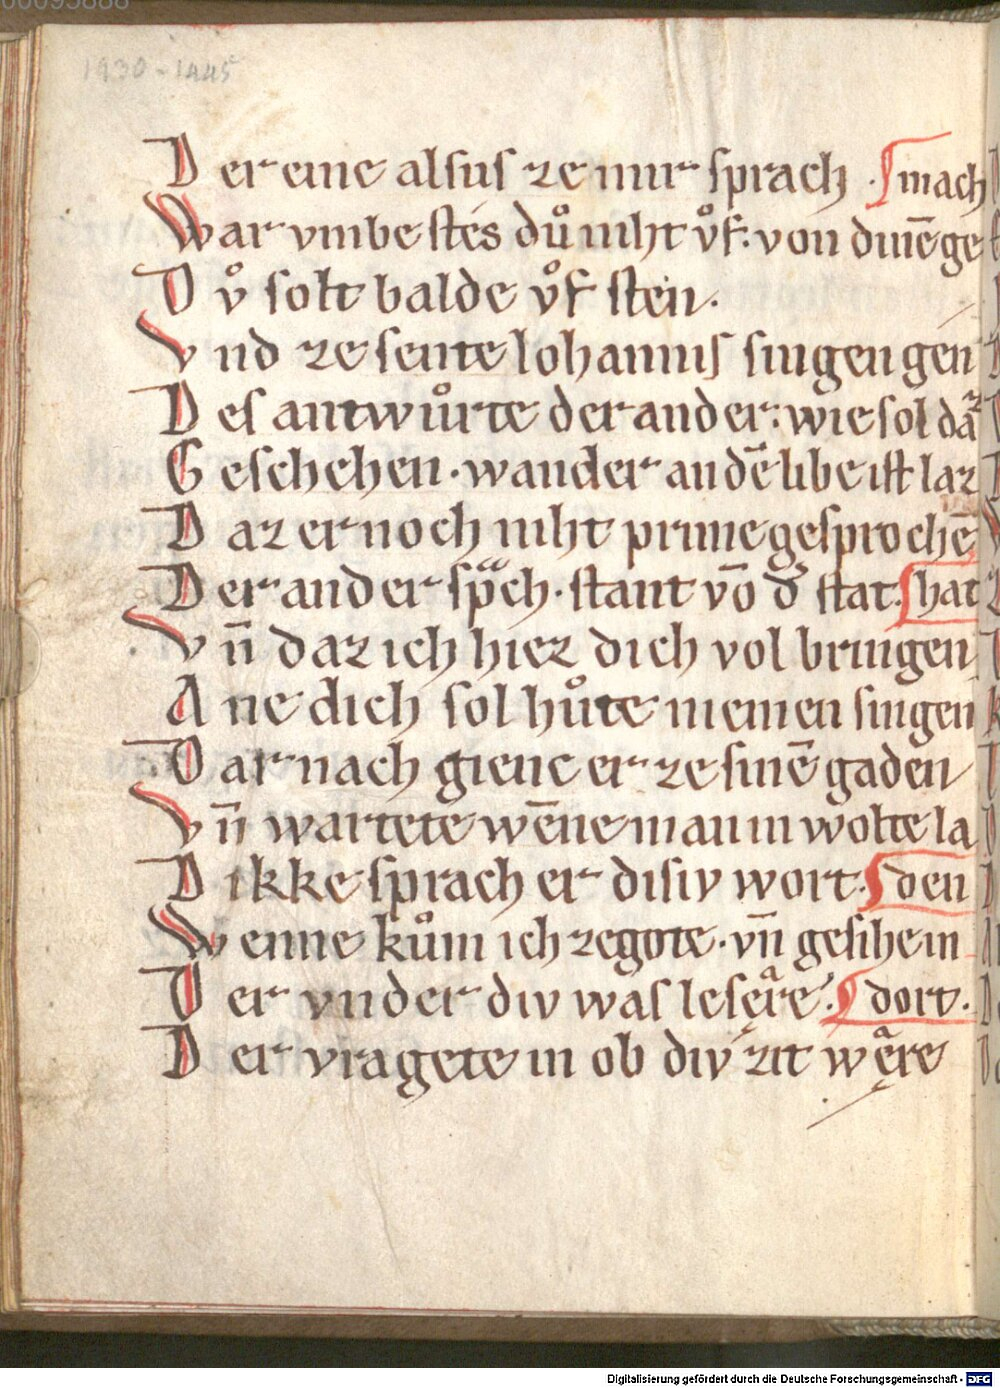 00095888
1930-1445
Der eine alsus ze mir sprach · mach
War vmbe stes dů niht vͦf · von dinē ge
Dvͦ solt balde vͦf sten ·
Vnd ze sente Iohannis singen gen
Des antwůrte der ander : wie sol daz
Geschehen · wan der an dē libe ist laz
Daz er noch niht prime gesprochē
Der ander spᵃch · stant vō dˀ stat · hat
Vn̄ daz ich hiez dich vol bringen
Ane dich sol hůte niemen singen
Dar nach gienc er ze sinē gaden
Vn̄ wartete wēne man in wolte la
Dikke sprach er disiv wort · den
Wenne kům ich ze gote · vn̄ gesihe in
Der vnder div was lesęͣre · dort ·
Der vragete in ob div zit węͣre
Digitalisierung gefördert durch die Deutsche Forschungsgemeinschaft - DFG